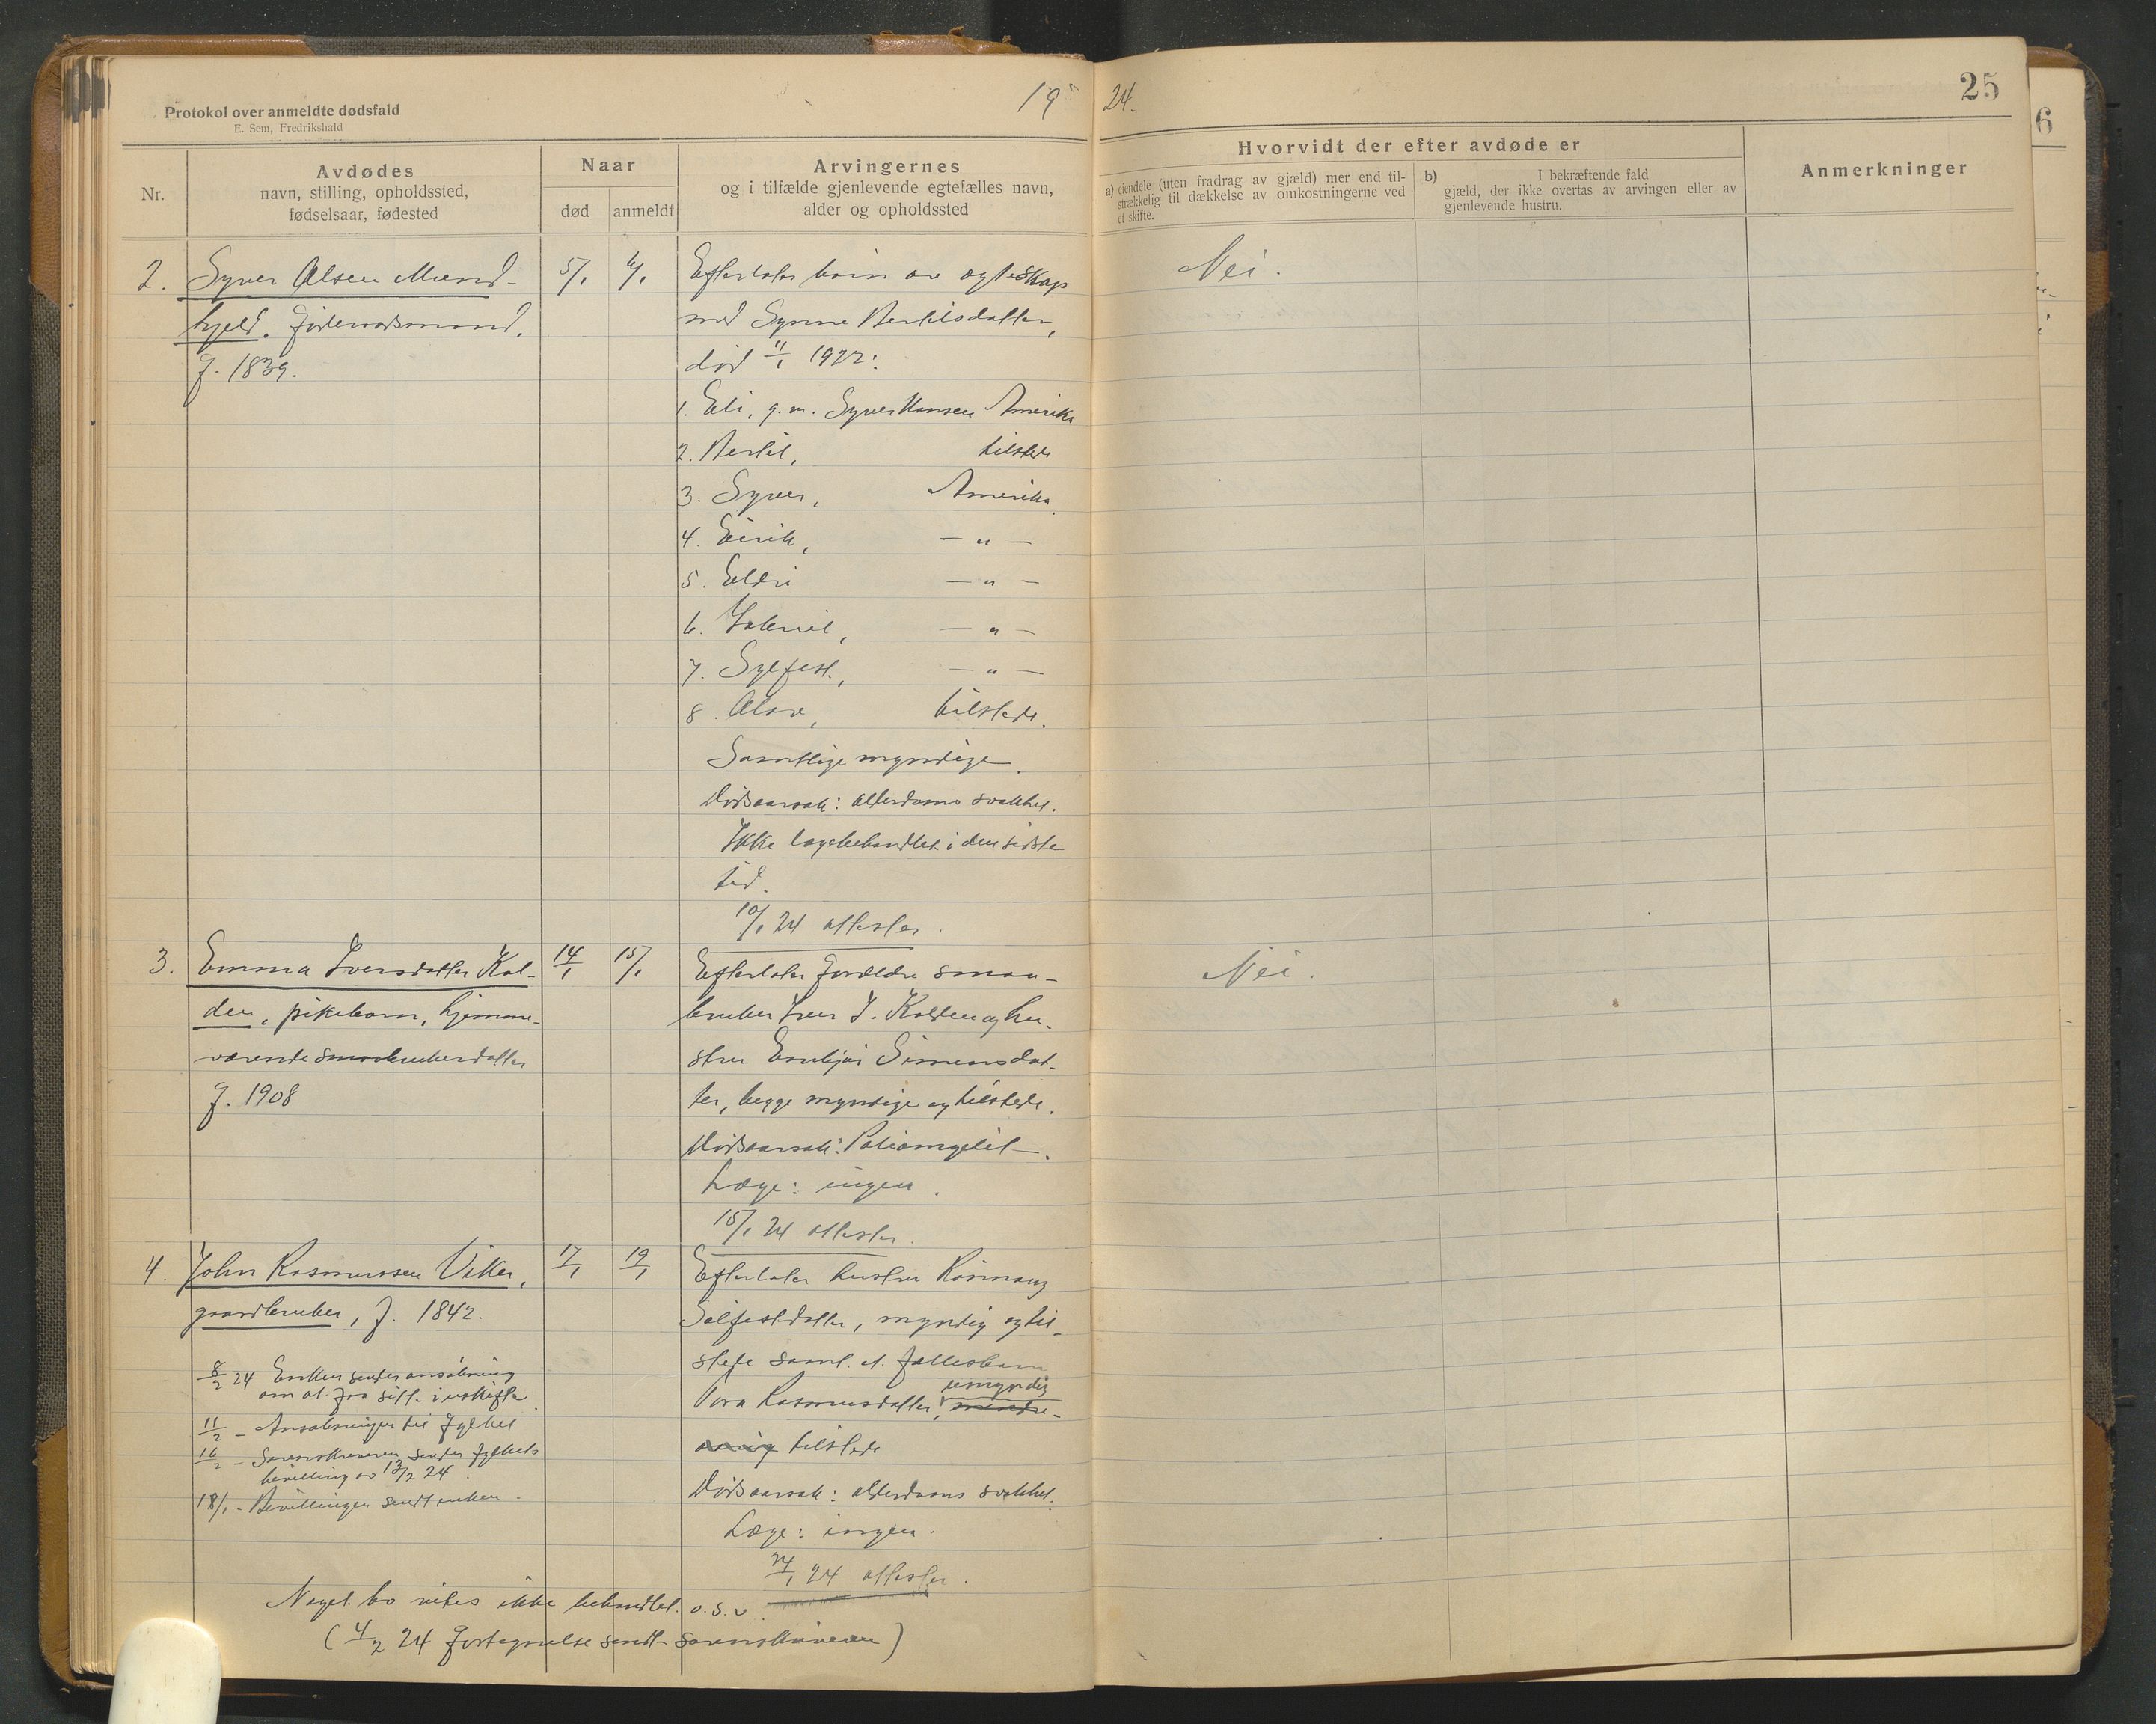 Protokol over anmeldte dødsfald
E. Sem, Fredrikshald
19
Nr.
Avdødes
navn, stilling, opholdssted,
fødselsaar, fødested
Naar
død
anmeldt
Arvingernes
og i tilfælde gjenlevende egtefælles navn,
alder og opholdssted
2.
Syver Olsen Mund-
hjeld. Föderaadsmand,
f. 1839.
5/1
6/1
Efterlater barn av egteskap
med Synne Bertilsdatter,
död 11/1 1922:
1. Eli, g.m. Syver Hansen Amerika
2. Bertil, tilstede
3. Syver, Amerika.
4. Eirik, — " —
5. Eldri — " —
6. Gabriel, — " —
7. Sylfest, — " —
8. Olav, tilstede.
Samtlige myndige.
Dödsaarsak: alderdoms svakhet.
Ikke lægebehandlet i den sidste
tid.
10/1 24 attester.
3.
Emma Iversdatter Kol-
den, pikebarn, hjemme-
værende smaabrukerdatter
f. 1908
14/1
15/1
Efterlater forældre smaa-
bruker Iver I. Kolden og hu-
stru Simensdat-
ter, begge myndige og tilstede.
Dödsaarsak: Poliomyelit.
Læge: ingen.
15/1 24 attester.
4.
John Rasmussen Viker,
gaardbruker, f. 1842.
17/1
19/1
Efterlater hustru
Sölfestdatter, myndig og til-
stede samt et fællesbarn
umyndig
Rasmusdatter, mindre-
aarig tilstede
Dödsaarsak: alderdoms svakhet.
Læge: ingen.
24/1 24 attester.
8/2 24 Enken sender ansökning
om at faa sitte i uskifte
11/2 - Ansökningen til fylket
16/2 - Sorenskriveren sender fylkets
bevilling av 13/2 24.
18/1 - Bevillingen sendt enken.
Noget bo vites ikke behandlet o.s.v.
(4/2 24 fortegnelse sendt sorenskriveren)
24.
25
Hvorvidt der efter avdøde er
a) eiendele (uten fradrag av gjæld) mer end til-
strækkelig til dækkelse av omkostningerne ved
et skifte.
b) I bekræftende fald
gjæld, der ikke overtas av arvingen eller av
gjenlevende hustru.
Anmerkninger
Nei.
Nei.
6